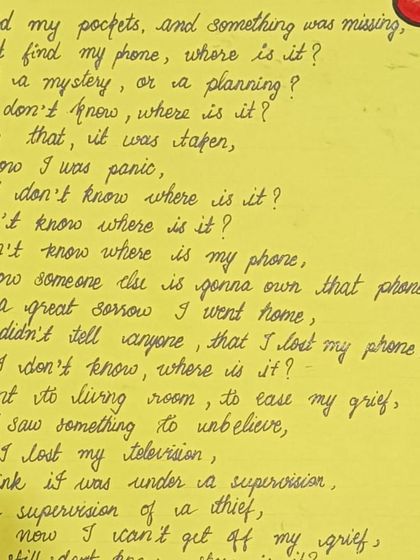 d my pockets, and something was missing,
t find my phone, where is it?
a mystery, or a planning?
don't know, where is it?
that, it was taken,
ow I was panic,
don't know where is it?
't know where is it?
n't know where is my phone,
ow someone else is gonna own that phone
a great sorrow I went home,
didn't tell anyone, that I lost my phone
I don't know, where is it?
nt to living room, to ease my grief,
saw something to unbelieve,
I lost my television,
ink it was under a supervision,
supervision of a thief,
now I can't get of my grief,
still don't know where is it?